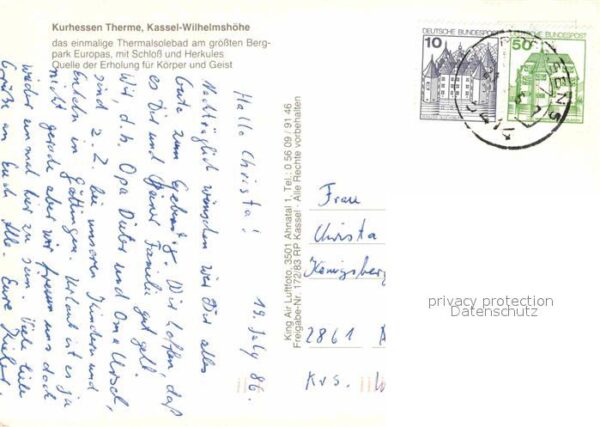 Kurhessen Therme, Kassel-Wilhelmshöhe
das einmalige Thermalsolebad am größten Berg-
park Europas, mit Schloß und Herkules
Quelle der Erholung für Körper und Geist
19. July 86.
Hallo Christa!
Nachträglich wünschen wir Dir alles
Gute zum Geburtstg. Wir hoffen, daß
es Dir und Deiner Familie gut geht.
Wir, d.h. Opa Dieter und Oma Ursel,
sind z.Z. bei unseren Kindern und
Enkeln in Göttingen. Urlaub ist es ja
nicht gerade aber wir freuen uns doch
wieder einmal hier zu sein. Viele liebe
Grüße an Euch Alle. Eure
King Air Luftfoto, 3501 Ahnatal 1, Tel.: 0 56 09 / 91 46
Freigabe-Nr. 172/83 RP Kassel - Alle Rechte vorbehalten
DEUTSCHE BUNDESPOST
10
DEUTSCHE BUNDESPOST
50
Frau
Christa
Königsberg
2861
Krs.
privacy protection
Datenschutz